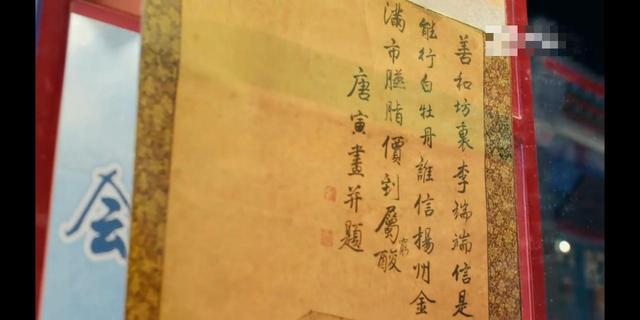 善和坊裏李端端信是
能行白牡丹誰信揚州金
滿市臙脂價到屬酸
窮
唐寅畫并題
会